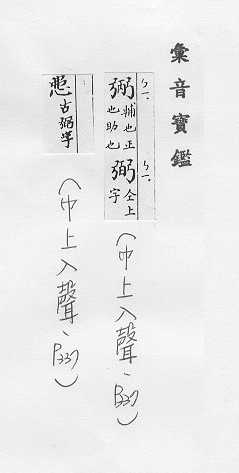 彙音寶鑑
ㄅㄧ.
弼輔也正也助也
ㄅㄧ.
弻仝上字
(巾上入聲、P337)
古弼字
(巾上入聲、P337)